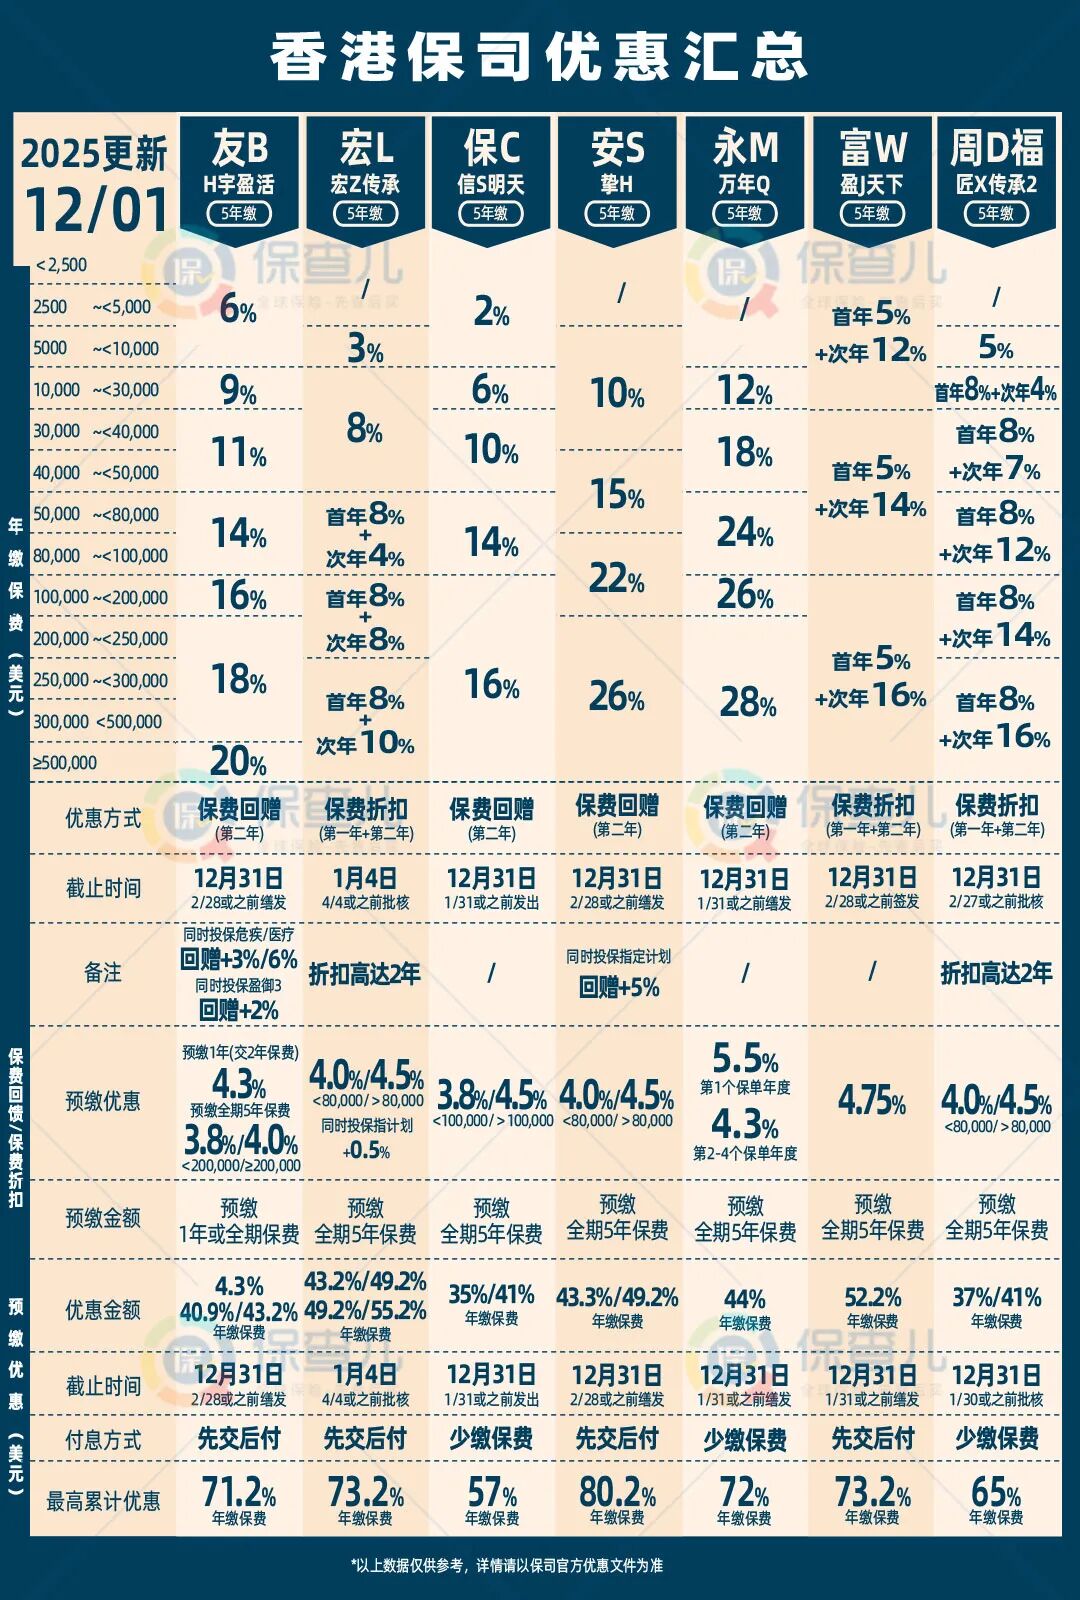 香港保司优惠汇总
2025更新
12/01
友B
H宇盈活
5年缴
宏L
宏Z传承
5年缴
保C
信S明天
5年缴
安S
挚H
5年缴
永M
万年Q
5年缴
富W
盈J天下
5年缴
周D福
匠X传承2
5年缴
年缴保费(美元)
<2,500
2500 ~<5,000
5000 ~<10,000
10,000 ~<30,000
30,000 ~<40,000
40,000 ~<50,000
50,000 ~<80,000
80,000 ~<100,000
100,000 ~<200,000
200,000 ~<250,000
250,000 ~<300,000
300,000 <500,000
≥500,000
6%
9%
11%
14%
16%
18%
20%
/
3%
8%
首年8%
+
次年4%
首年8%
+
次年8%
首年8%
+
次年10%
2%
6%
10%
14%
16%
/
10%
15%
22%
26%
/
12%
18%
24%
26%
28%
首年5%
+次年12%
首年5%
+次年14%
首年5%
+次年16%
/
5%
首年8%+次年4%
首年8%
+次年7%
首年8%
+次年12%
首年8%
+次年14%
首年8%
+次年16%
保费回馈/保费折扣
优惠方式
保费回赠
(第二年)
保费折扣
(第一年+第二年)
保费回赠
(第二年)
保费回赠
(第二年)
保费回赠
(第二年)
保费折扣
(第一年+第二年)
保费折扣
(第一年+第二年)
截止时间
12月31日
2/28或之前缮发
1月4日
4/4或之前批核
12月31日
1/31或之前发出
12月31日
2/28或之前缮发
12月31日
1/31或之前缮发
12月31日
2/28或之前签发
12月31日
2/27或之前批核
备注
同时投保危疾/医疗
回赠+3%/6%
同时投保盈御3
回赠+2%
折扣高达2年
/
同时投保指定计划
回赠+5%
/
/
折扣高达2年
预缴优惠(美元)
预缴优惠
预缴1年(交2年保费)
4.3%
预缴全期5年保费
3.8%/4.0%
<200,000/≥200,000
4.0%/4.5%
<80,000/>80,000
同时投保指计划
+0.5%
3.8%/4.5%
<100,000/>100,000
4.0%/4.5%
<80,000/>80,000
5.5%
第1个保单年度
4.3%
第2-4个保单年度
4.75%
4.0%/4.5%
<80,000/>80,000
预缴金额
预缴
1年或全期保费
预缴
全期5年保费
预缴
全期5年保费
预缴
全期5年保费
预缴
全期5年保费
预缴
全期5年保费
预缴
全期5年保费
优惠金额
4.3%
40.9%/43.2%
年缴保费
43.2%/49.2%
49.2%/55.2%
年缴保费
35%/41%
年缴保费
43.3%/49.2%
年缴保费
44%
年缴保费
52.2%
年缴保费
37%/41%
年缴保费
截止时间
12月31日
2/28或之前缮发
1月4日
4/4或之前批核
12月31日
1/31或之前发出
12月31日
2/28或之前缮发
12月31日
1/31或之前缮发
12月31日
1/31或之前缮发
12月31日
1/30或之前批核
付息方式
先交后付
先交后付
少缴保费
先交后付
少缴保费
先交后付
少缴保费
最高累计优惠
71.2%
年缴保费
73.2%
年缴保费
57%
年缴保费
80.2%
年缴保费
72%
年缴保费
73.2%
年缴保费
65%
年缴保费
*以上数据仅供参考，详情请以保司官方优惠文件为准
保查儿
全球保险-先查后买